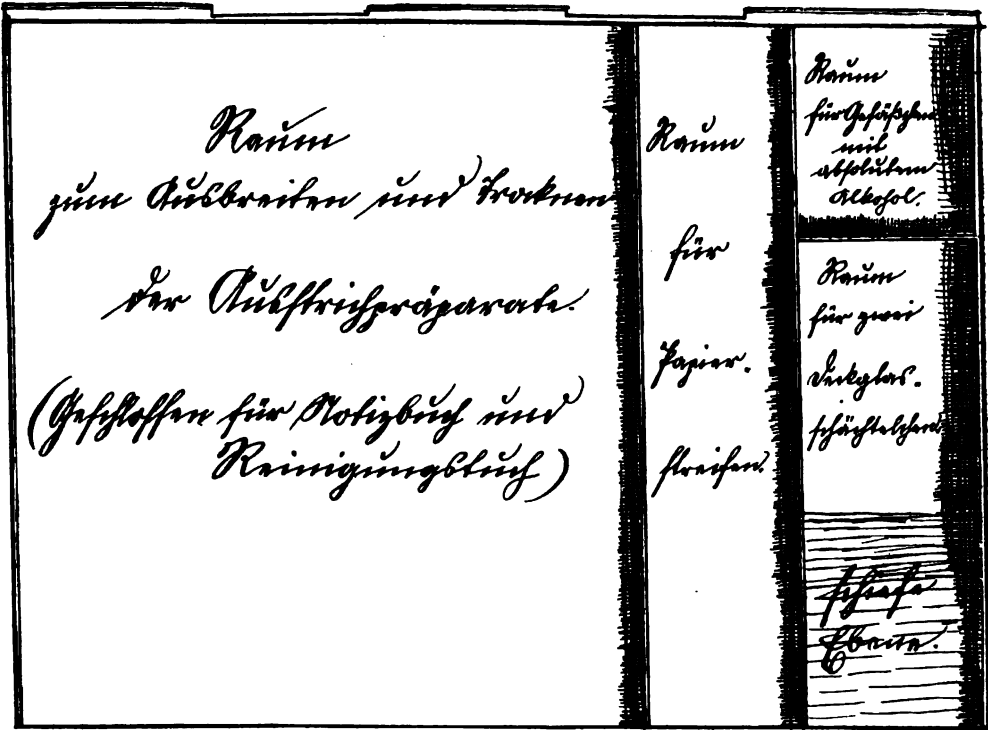 Raum
zum Ausbreiten und Trocknen
der Ausstrichpräparate.
(Geschlossen für Notizbuch und
Reinigungstuch)
Raum
für
Papier-
streifen.
Raum
für Gefäßchen
mit
absolutem
Alkohol.
Raum
für zwei
Deckglas-
schächtelchen.
schiefe
Ebene.